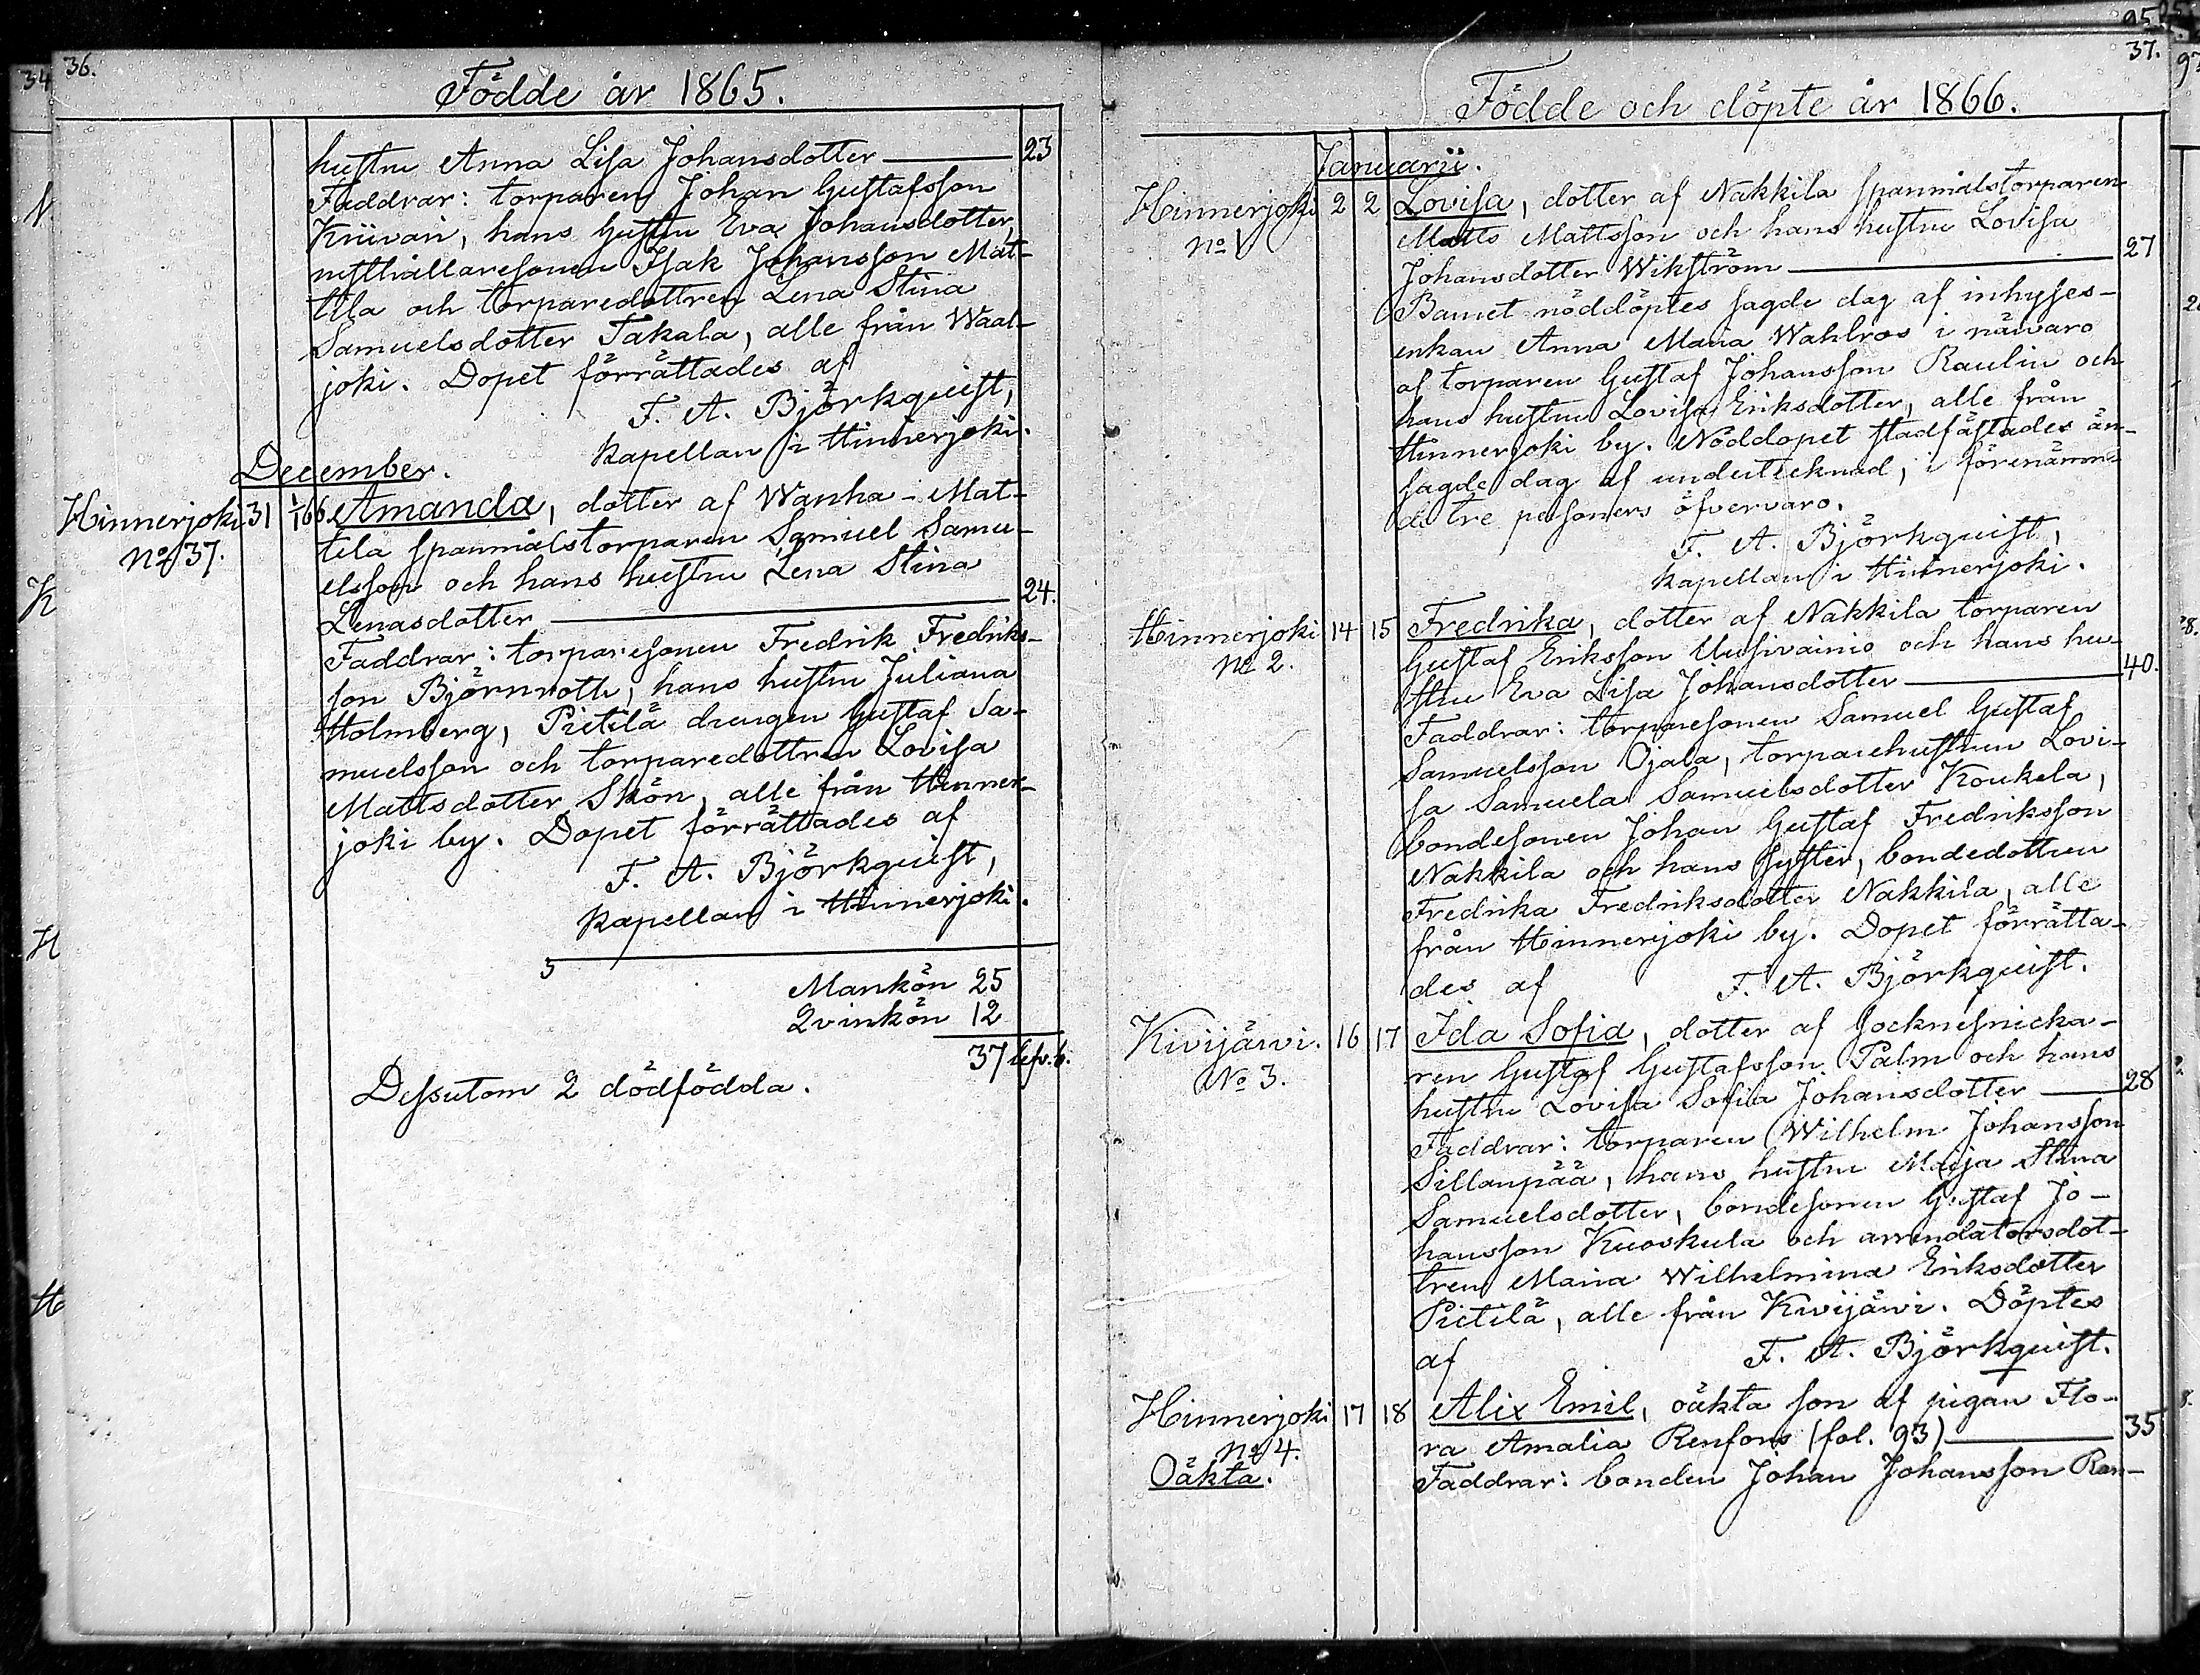 36.
Födde år 1865.
hustru Anna Lisa Johansdotter — 23
Faddrar: torparen Johan Gustafsson
Kiivari, hans hustru Eva Johansdotter,
rusthållaresonen Isak Johansson Mat-
tila och torparedottren Lena Stina
Samuelsdotter Takala, alle från Waal-
joki. Dopet förrättades af
F. A. Björkquist,
kapellan i Hinnerjoki.
December.
Hinnerjoki 31 1/1 66 Amanda, dotter af Wanha-Mat-
No 37. tila spanmålstorparen Samuel Samu-
elsson och hans hustru Lena Stina
Lenasdotter — 24.
Faddrar: torparesonen Fredrik Fredriks-
son Björnroth, hans hustru Juliana
Holmberg, Pietilä drengen Gustaf Sa-
muelsson och torparedottren Lovisa
Mattsdotter Skön, alle från Hinner-
joki by. Dopet förrättades af
F. A. Björkquist,
kapellan i Hinnerjoki.
Mankön 25
Qvinkön 12
37 lefv. b.
Dessutom 2 dödfödda.
37.
Födde och döpte år 1866.
Januarii.
Hinnerjoki 2 2 Lovisa, dotter af Nakkila spanmålstorparen
No 1 Matts Mattsson och hans hustru Lovisa
Johansdotter Wikström — 27
Barnet nöddöptes sagde dag af inhyses-
enkan Anna Maria Wahlros i närvaro
af torparen Gustaf Johansson Raulin och
hans hustru Lovisa Eriksdotter, alle från
Hinnerjoki by. Nöddopet stadfästades än-
sagde dag af undertecknad, i förenämn-
de tre personers öfvervaro.
F. A. Björkquist,
kapellan i Hinnerjoki.
Hinnerjoki 14 15 Fredrika, dotter af Nakkila torparen
No 2. Gustaf Eriksson Uusivainio och hans hu-
stru Eva Lisa Johansdotter — 40.
Faddrar: torparesonen Samuel Gustaf
Samuelsson Ojala, torparehustrun Lovi-
sa Samuela Samuelsdotter Koukela,
bondesonen Johan Gustaf Fredriksson
Nakkila och hans syster, bondedottren
Fredrika Fredriksdotter Nakkila, alle
från Hinnerjoki by. Dopet förrätta-
des af F. A. Björkquist.
Kivijärvi. 16 17 Ida Sofia, dotter af socknesnicka-
No 3. ren Gustaf Gustafsson Palm och hans
hustru Lovisa Sofia Johansdotter — 28
Faddrar: torparen Wilhelm Johansson
Sillanpää, hans hustru Maija Stina
Samuelsdotter, bondesonen Gustaf Jo-
hansson Kuoskula och arrendatorsdot-
tren Maria Wilhelmina Eriksdotter
Pietilä, alle från Kivijärvi. Döptes
af F. A. Björkquist.
Hinnerjoki 17 18 Alix Emil, oäkta son af pigan Flo-
No 4. ra Amalia Renfors (fol. 93) — 35
Oäkta. Faddrar: bonden Johan Johansson Ran-